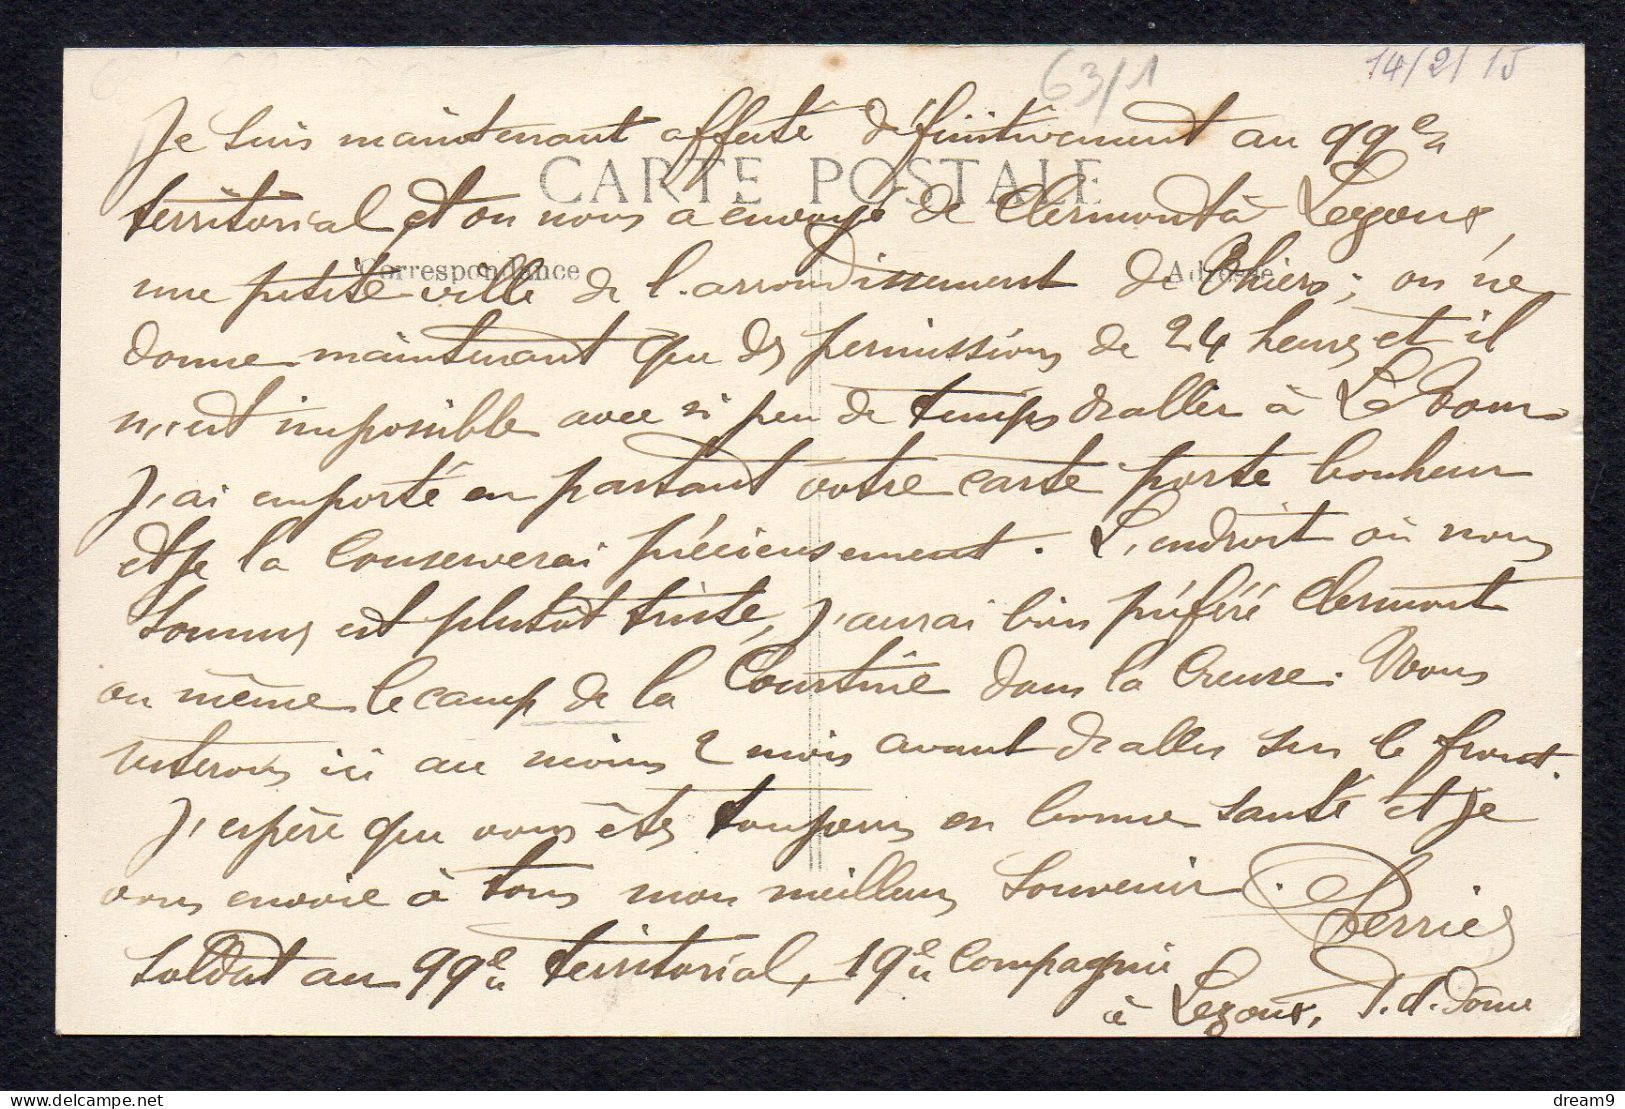 63/1
14/2/15
Je suis maintenant affecté définitivement au 99e
CARTE POSTALE
territorial et on nous a envoyé de Clermont à Lezoux,
Correspondance
Adresse
une petite ville de l'arrondissement de Thiers ; on ne
donne maintenant que des permissions de 24 heures et il
m'est impossible avec si peu de temps d'aller à Le
J'ai emporté en partant votre carte porte bonheur
et je la conserverai précieusement. L'endroit où nous
sommes est plutôt triste, j'aurai bien préféré Clermont
ou même le camp de la Courtine dans la Creuse. Nous
resterons ici au moins 2 mois avant d'aller sur le front.
J'espère que vous êtes toujours en bonne santé et je
vous envoie à tous mon meilleur souvenir.
Perrier
soldat au 99e territorial, 19e compagnie
à Lezoux, P. d. Dôme
delcampe.net
dream9